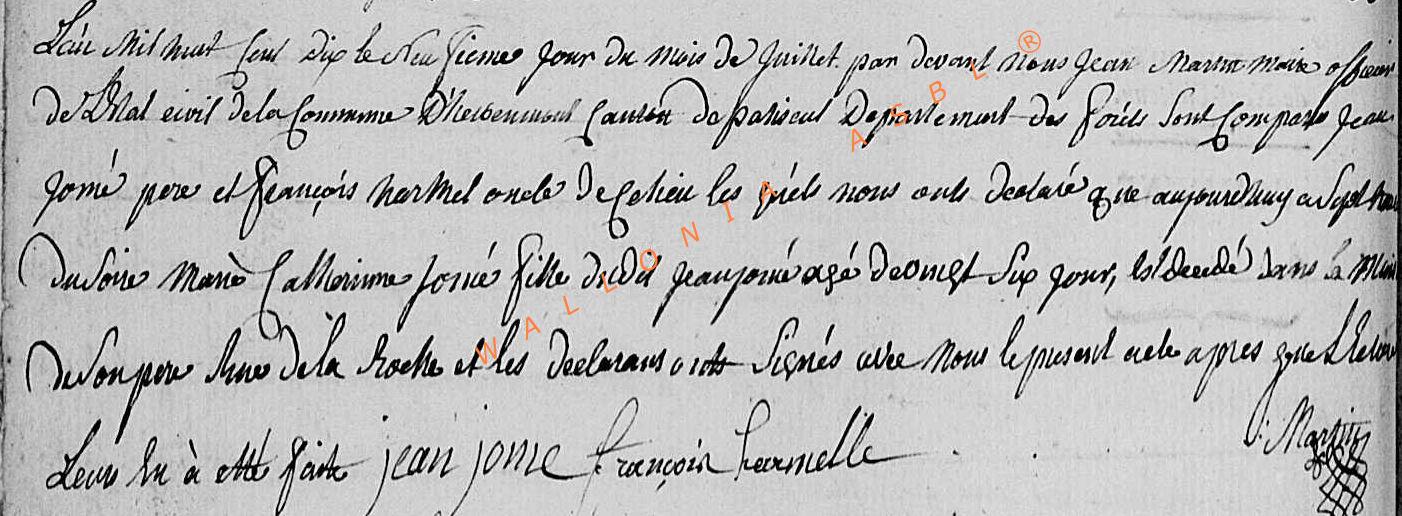 L'an Mil huit Cent Dix le Neufieme Jour du Mois de Juillet par devant Nous Jean Martin Maire officier
de L'Etat civil de la Commune D'herbeumont Canton de paliseul Departement des forêts Sont Comparu Jean
Jomé pere et françois harmel oncle De Ce lieu les quels nous onts declaré que aujourdhuy a Sept heure
du Soire Marie Catherinne Jomé fille dudit Jean jomé agé de vingt Six Jour, Est decedé dans la
de Son pere Rue de la Roche et les declarans onts Signés avec Nous le present acte apres que
Leur En à etté faite jean jome françois harmelle
Martin
WALLONIA ASBL ®